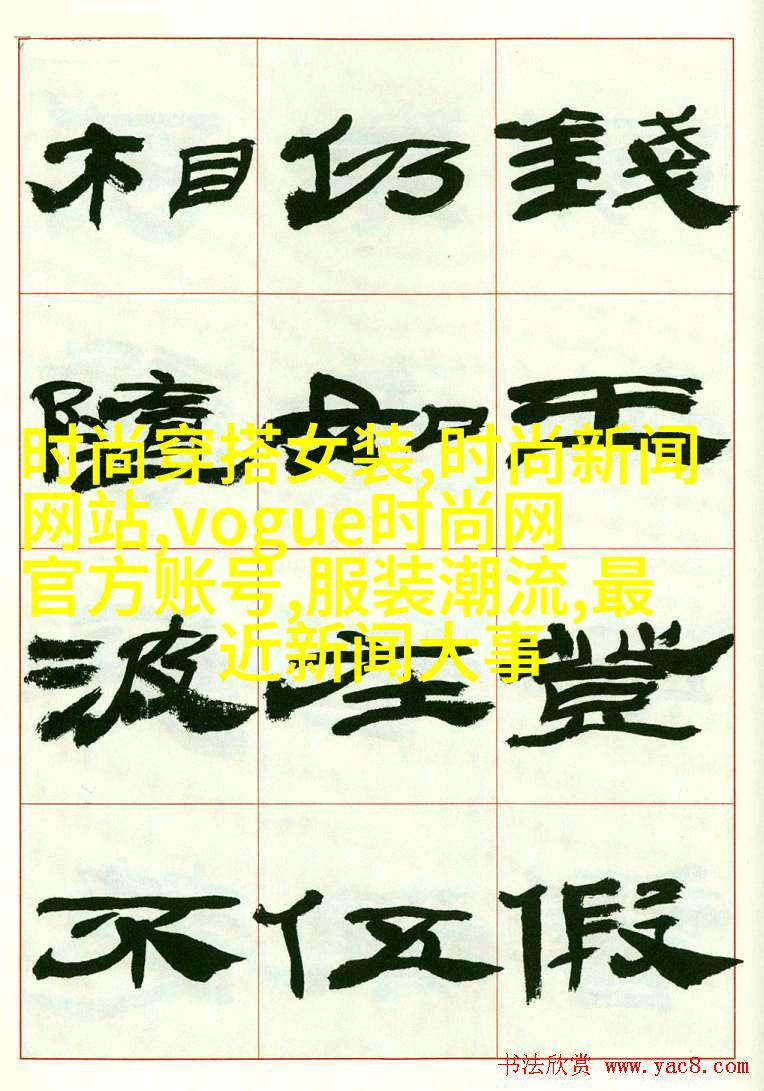 相仍錢
隨如于
波坐豈
不伍假
时尚穿搭女装,时尚新闻
网站,vogue时尚网
官方账号,服装潮流,最
近新闻大事
书法欣赏 www.yac8.com